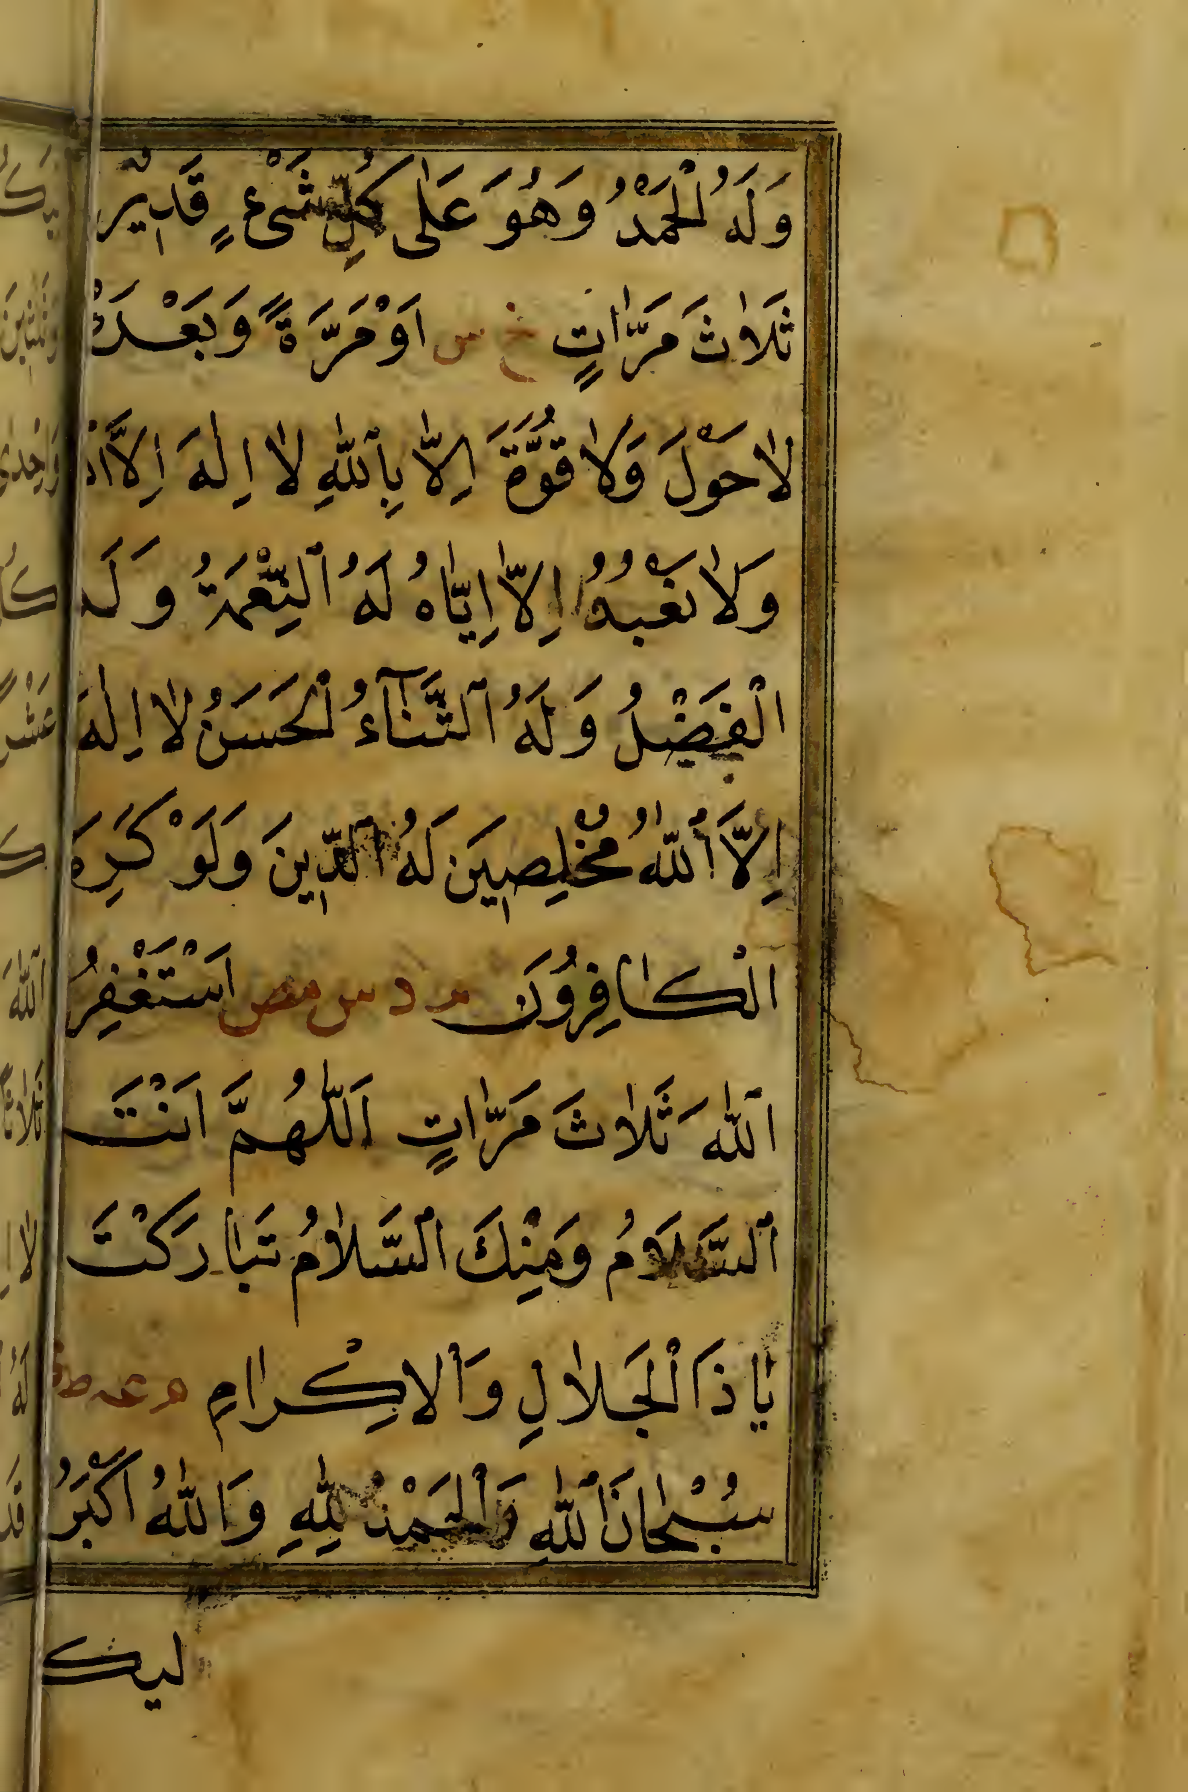 وَلَهُ الْحَمْدُ وَهُوَ عَلٰى كُلِّ شَىْءٍ قَدِيْرٌ
ثَلَاثَ مَرَّاتٍ خ س اَوْ مَرَّةً وَبَعْدَهُ
لَا حَوْلَ وَلَا قُوَّةَ اِلَّا بِاللّٰهِ لَا اِلٰهَ اِلَّا
وَلَا نَعْبُدُ اِلَّا اِيَّاهُ لَهُ النِّعْمَةُ وَلَهُ
الْفَضْلُ وَلَهُ الثَّنَآءُ الْحَسَنُ لَا اِلٰهَ
اِلَّا اللّٰهُ مُخْلِصِينَ لَهُ الدِّينَ وَلَوْ كَرِهَ
الْكَافِرُونَ م د س مص اَسْتَغْفِرُ
اللّٰهَ ثَلَاثَ مَرَّاتٍ اَللّٰهُمَّ اَنْتَ
السَّلَامُ وَمِنْكَ السَّلَامُ تَبَارَكْتَ
يَا ذَا الْجَلَالِ وَالْاِكْرَامِ م عه
سُبْحَانَ اللّٰهِ وَالْحَمْدُ لِلّٰهِ وَاللّٰهُ اَكْبَرُ
ليك